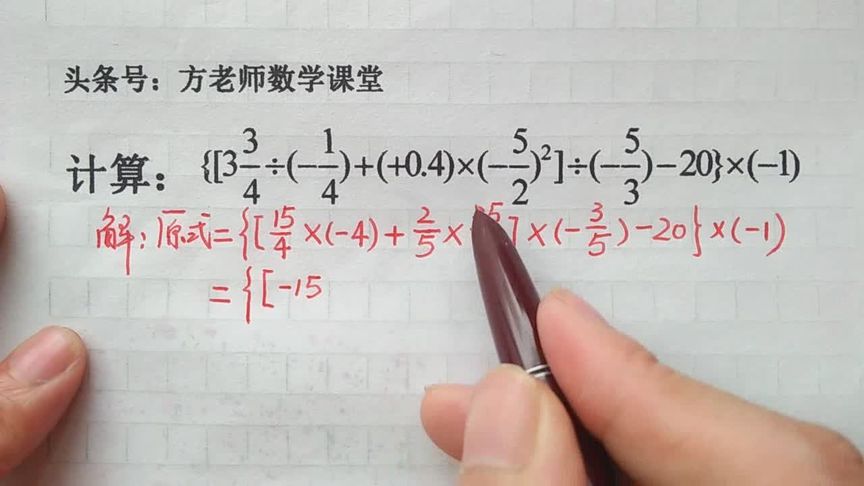 头条号：方老师数学课堂
计算：{[3 3/4÷(-1/4)+(+0.4)×(-5/2)²]÷(-5/3)-20}×(-1)
解：原式={[15/4×(-4)+2/5× 5]×(-3/5)-20}×(-1)
={[-15